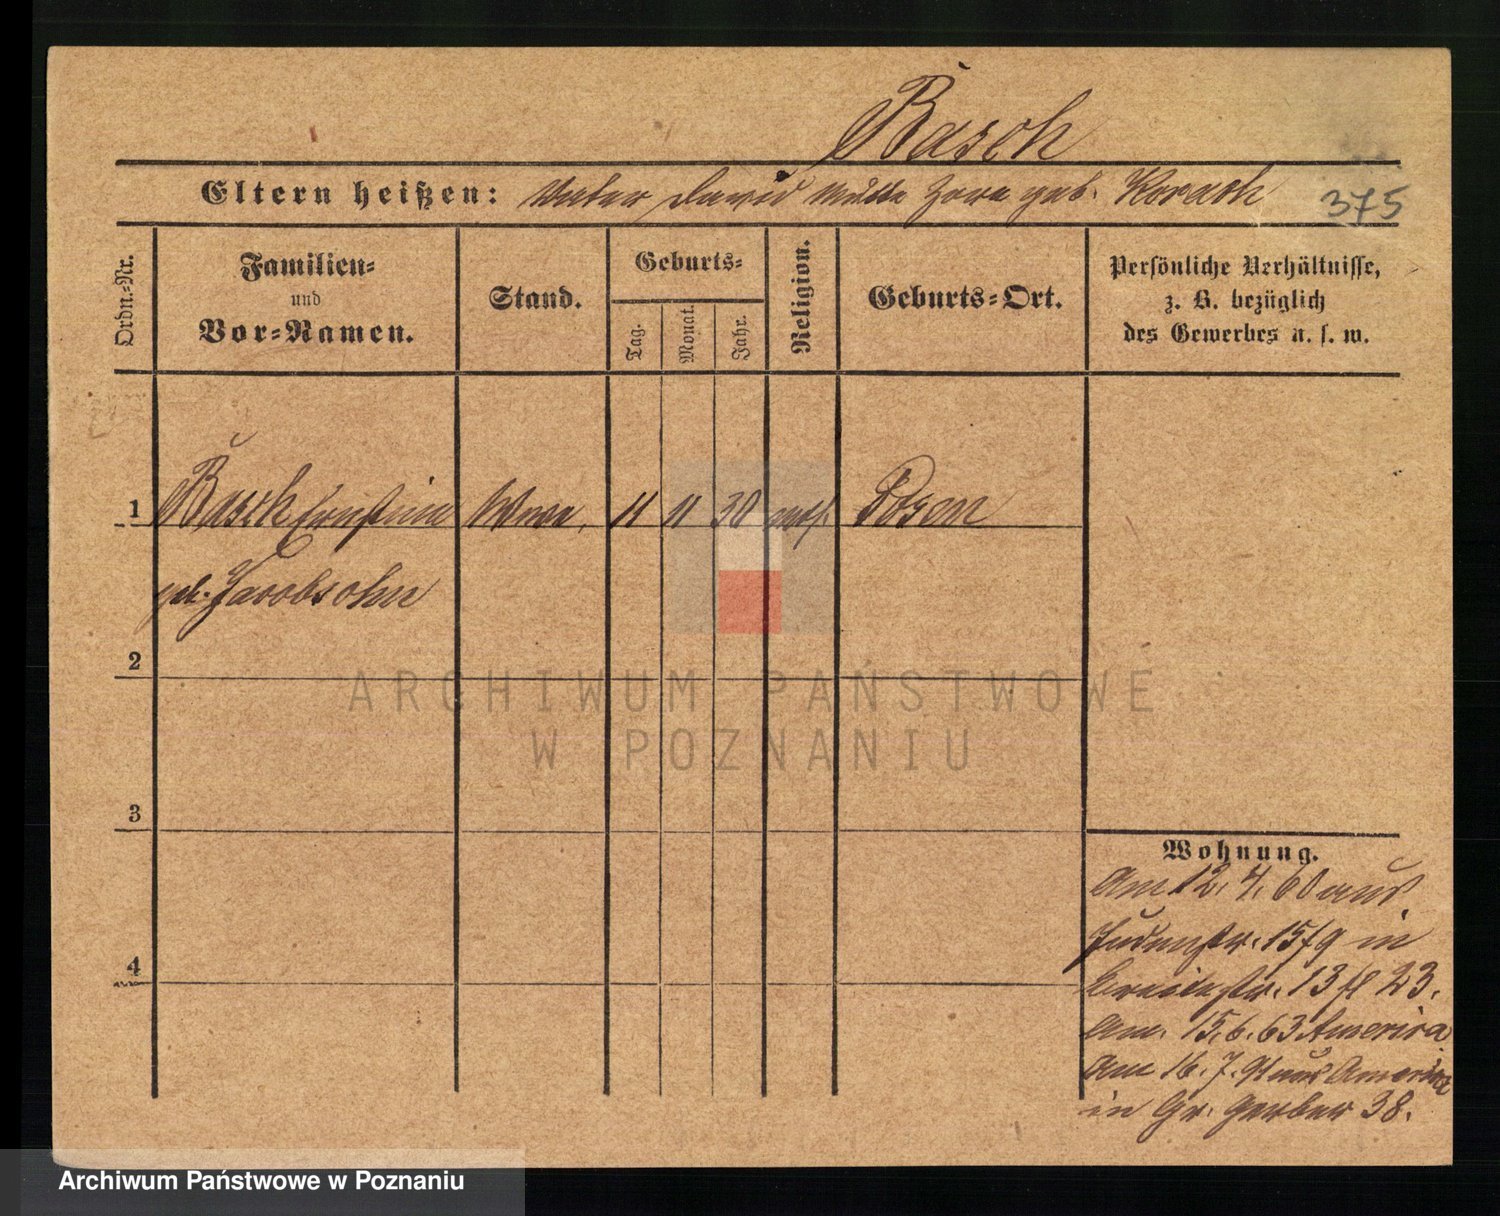 Basch
Eltern heißen: Vater David Mutter geb. Korach 375
Ordn.-Nr.
Familien-
und
Vor-Namen.
Stand.
Geburts-
Tag.
Monat.
Jahr.
Religion.
Geburts-Ort.
Persönliche Verhältnisse,
z. B. bezüglich
des Gewerbes u. s. w.
1 Basch Ernstine Wwe, 11 11 30 mos. Posen
geb. Jacobsohn
2
3
4
Wohnung.
Am 12. 4. 60 aus
Judenstr. 15/9 in
Breitestr. 13 23.
Am. 15. 6. 63 Amerika
Am 16. 7. 91 aus Amerika
in Gr. Gerber 38.
ARCHIWUM PAŃSTWOWE
W POZNANIU
Archiwum Państwowe w Poznaniu